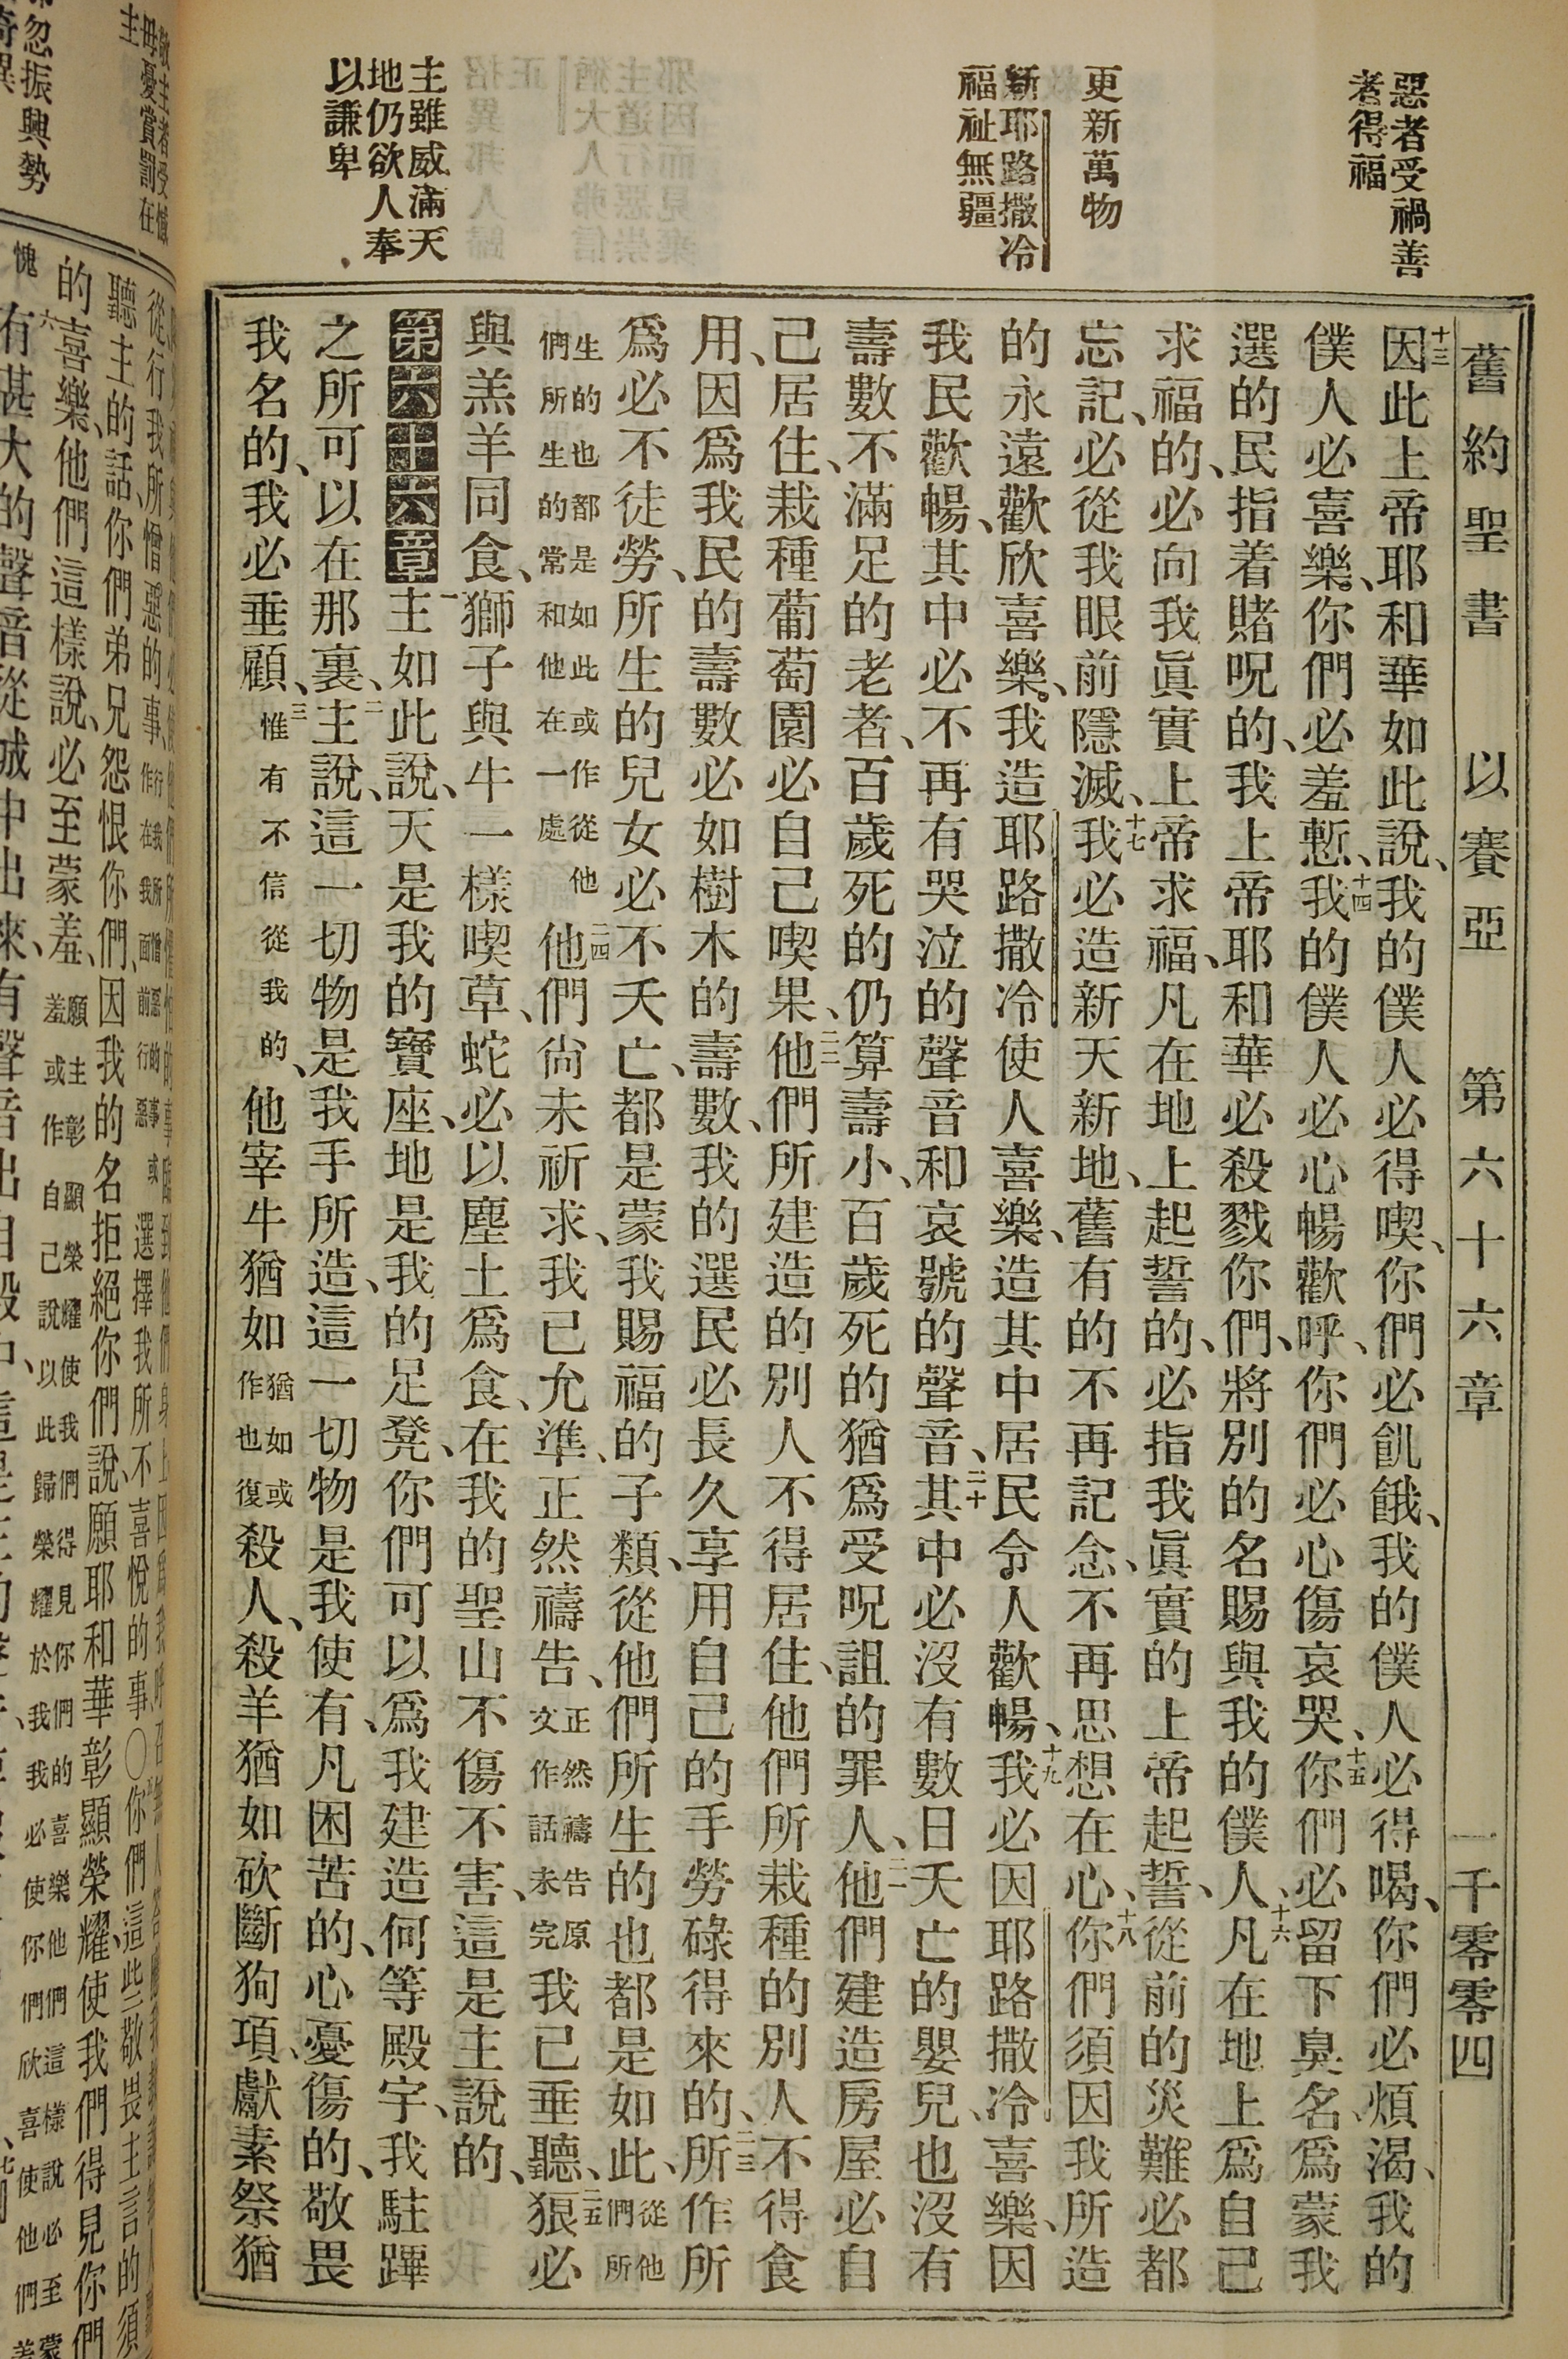 舊約聖書 以賽亞 第六十六章 一千零零四
惡者受禍善
者得福
更新萬物
新耶路撒冷
福祉無疆
主雖威滿天
地仍欲人奉
以謙卑
十三因此上帝耶和華如此說、我的僕人必得喫、你們必飢餓、我的僕人必得喝、你們必煩渴、我的
僕人必喜樂、你們必羞慙、十四我的僕人必心暢歡呼、你們必心傷哀哭、十五你們必留下臭名、爲蒙我
選的民指着賭呪的、我上帝耶和華必殺戮你們、將別的名賜與我的僕人、十六凡在地上爲自己
求福的、必向我眞實上帝求福、凡在地上起誓的、必指我眞實的上帝起誓、從前的災難必都
忘記、必從我眼前隱滅、十七我必造新天新地、舊有的不再記念、不再思想在心、十八你們須因我所造
的永遠歡欣喜樂、我造耶路撒冷使人喜樂、造其中居民令人歡暢、十九我必因耶路撒冷喜樂、因
我民歡暢、其中必不再有哭泣的聲音和哀號的聲音、二十其中必沒有數日夭亡的嬰兒、也沒有
壽數不滿足的老者、百歲死的仍算壽小、百歲死的猶爲受呪詛的罪人、二一他們建造房屋必自
己居住、栽種葡萄園必自己喫果、二二他們所建造的別人不得居住、他們所栽種的別人不得食
用、因爲我民的壽數必如樹木的壽數、我的選民必長久享用自己的手勞碌得來的、二三所作所
爲必不徒勞、所生的兒女必不夭亡、都是蒙我賜福的子類、從他們所生的也都是如此、從他們所
生的也都是如此或作從他們所生的常和他在一處 二四他們尙未祈求、我已允準、正然禱告、正然禱告原文作話未完 我已垂聽、二五狼必
與羔羊同食、獅子與牛一樣喫草、蛇必以塵土爲食、在我的聖山不傷不害、這是主說的、
第六十六章 一主如此說、天是我的寶座、地是我的足凳、你們可以爲我建造何等殿宇、我駐蹕
之所可以在那裏、二主說、這一切物是我手所造、這一切物是我使有、凡困苦的、心憂傷的、敬畏
我名的、我必垂顧、三惟有不信從我的、他宰牛猶如猶如或作也復殺人、殺羊猶如砍斷狗項、獻素祭猶